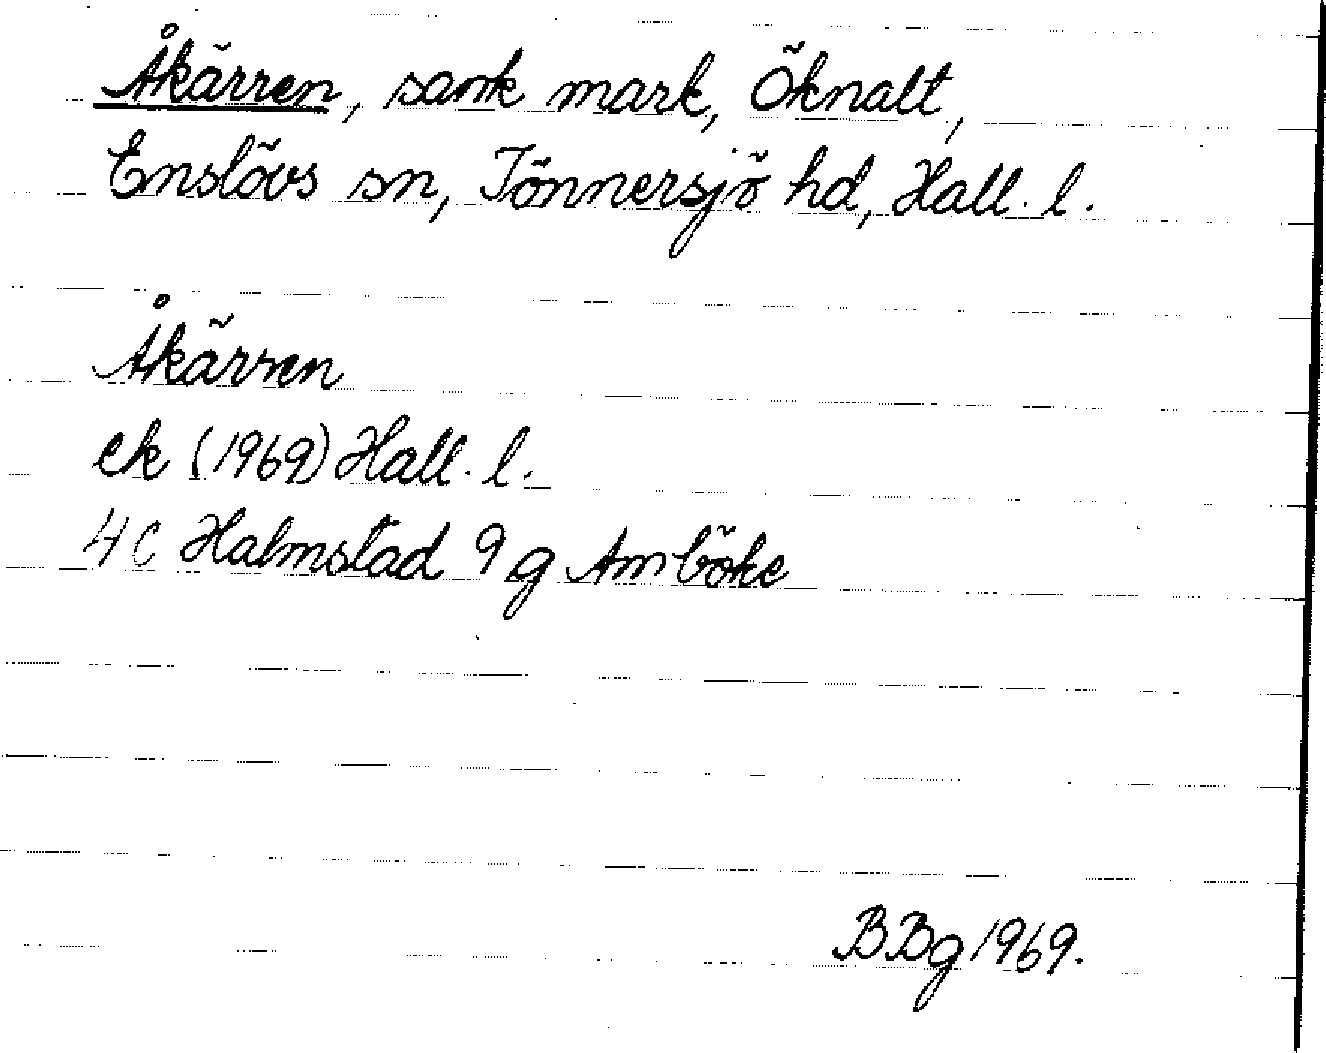 Åkärren, sank mark, Öknalt,
Enslövs sn, Tönnersjö hd, Hall. l.
Åkärren
ek (1969) Hall. l.
4C Halmstad 9 g Amböke
BBg 1969.